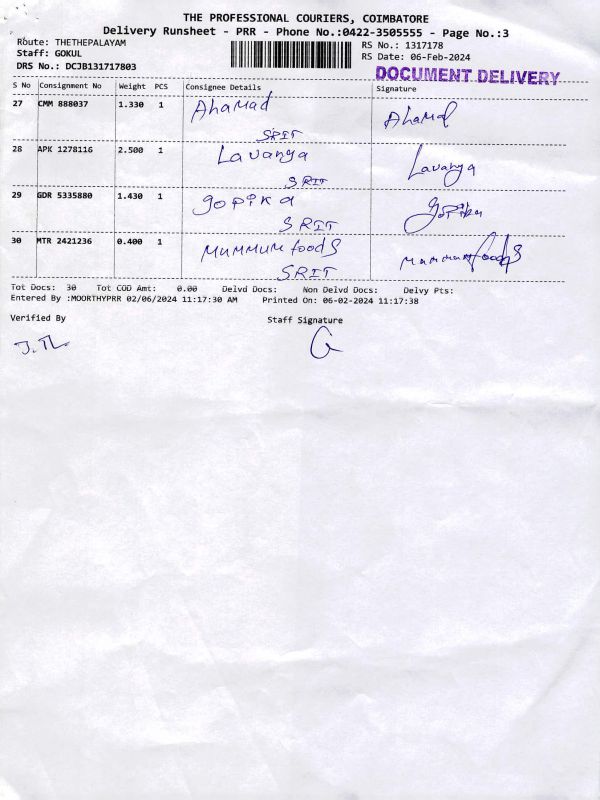 THE PROFESSIONAL COURIERS, COIMBATORE
Delivery Runsheet - PRR - Phone No.:0422-3505555 - Page No.:3
Route: THETHEPALAYAM
RS No.: 1317178
Staff: GOKUL
RS Date: 06-Feb-2024
DRS No.: DCJB131717803
DOCUMENT DELIVERY
S No Consignment No Weight PCS Consignee Details Signature
27 CMM 888037 1.330 1 Ahamad Ahamad
SRIT
28 APK 1278116 2.500 1 Lavanya Lavanya
SRIT
29 GDR 5335880 1.430 1 Gopika Gopika
SRIT
30 MTR 2421236 0.400 1 Mummum foods Mummum foods
SRIT
Tot Docs: 30 Tot COD Amt: 0.00 Delvd Docs: Non Delvd Docs: Delvy Pts:
Entered By :MOORTHYPRR 02/06/2024 11:17:30 AM Printed On: 06-02-2024 11:17:38
Verified By Staff Signature
G